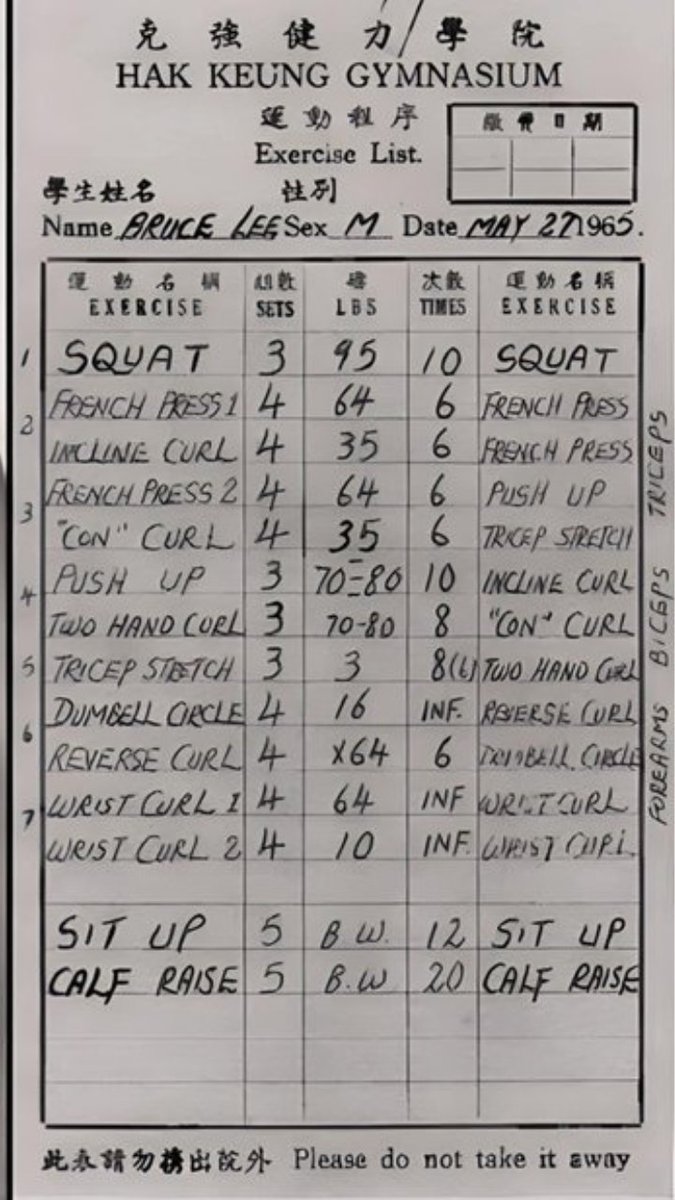 克強健力學院
HAK KEUNG GYMNASIUM
運動程序
Exercise List.
繳費日期
學生姓名 性別
Name BRUCE LEE Sex M Date MAY 27 1965.
運動名稱 組數 磅 次數 運動名稱
EXERCISE SETS LBS TIMES EXERCISE
1 SQUAT 3 95 10 SQUAT
FRENCH PRESS 1 4 64 6 FRENCH PRESS
2
INCLINE CURL 4 35 6 FRENCH PRESS
FRENCH PRESS 2 4 64 6 PUSH UP
3
"CON" CURL 4 35 6 TRICEP STRETCH
PUSH UP 3 70-80 10 INCLINE CURL
4
TWO HAND CURL 3 70-80 8 "CON" CURL
TRICEP STRETCH 3 3 8(6) TWO HAND CURL
5
DUMBELL CIRCLE 4 16 INF. REVERSE CURL
6
REVERSE CURL 4 X64 6 DUMBELL CIRCLE
WRIST CURL 1 4 64 INF WRIST CURL
7
WRIST CURL 2 4 10 INF. WRIST CURL
SIT UP 5 B.W. 12 SIT UP
CALF RAISE 5 B.W 20 CALF RAISE
TRICEPS
BICEPS
FOREARMS
此表請勿携出院外 Please do not take it away